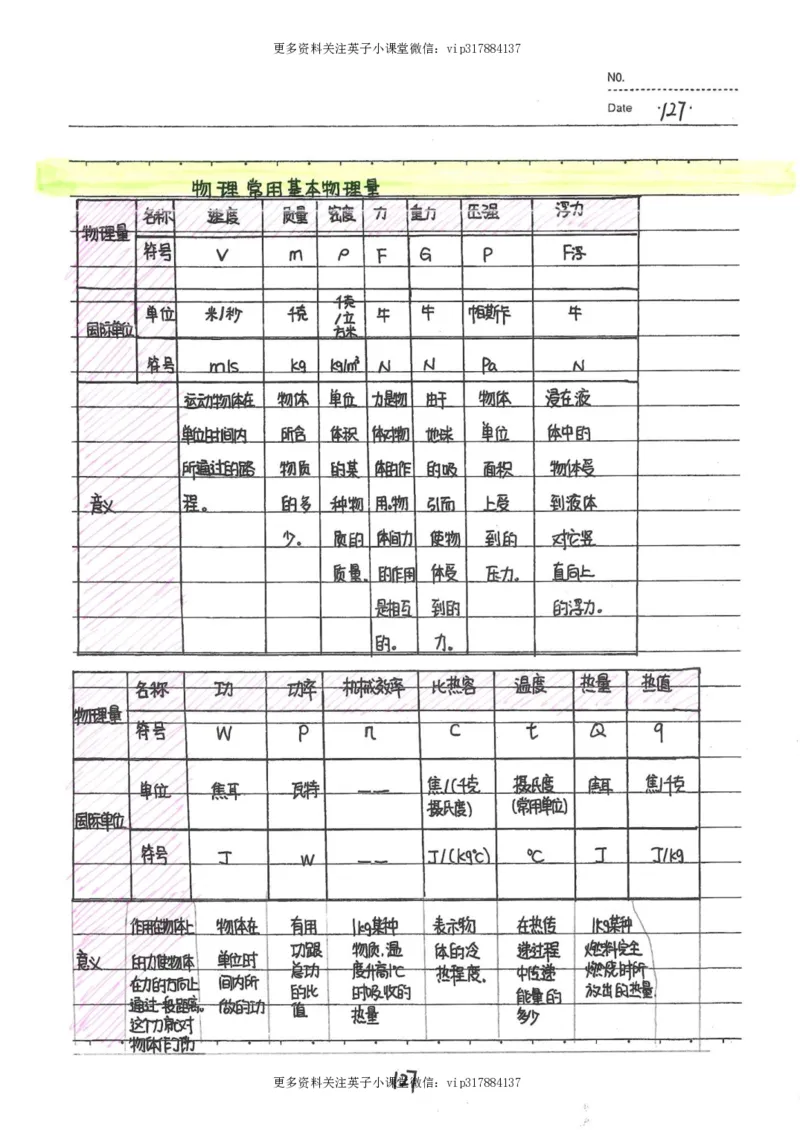 更多资料关注英子小课堂微信：vip317884137
NO.
Date ·127·
物理 常用基本物理量
物理量 名称 速度 质量 密度 力 重力 压强 浮力
符号 V m ρ F G P F浮
国际单位 单位 米/秒 千克 千克/立方米 牛 牛 帕斯卡 牛
符号 m/s kg kg/m³ N N Pa N
意义 运动物体在单位时间内所通过的路程。 物体所含物质的多少。 单位体积的某种物质的质量。 力是物体对物体的作用。物体间力的作用是相互的。 由于地球的吸引而使物体受到的力。 物体单位面积上受到的压力。 浸在液体中的物体受到液体对它竖直向上的浮力。
物理量 名称 功 功率 机械效率 比热容 温度 热量 热值
符号 W P η C t Q q
国际单位 单位 焦耳 瓦特 —— 焦/(千克摄氏度) 摄氏度(常用单位) 焦耳 焦/千克
符号 J W —— J/(kg℃) ℃ J J/kg
意义 作用在物体上的力使物体在力的方向上通过一段距离。这个力就对物体作了功 物体在单位时间内所做的功 有用功跟总功的比值 1kg某种物质，温度升高1℃时吸收的热量 表示物体的冷热程度。 在热传递过程中传递能量的多少 1kg某种燃料完全燃烧时所放出的热量
127
更多资料关注英子小课堂微信：vip317884137